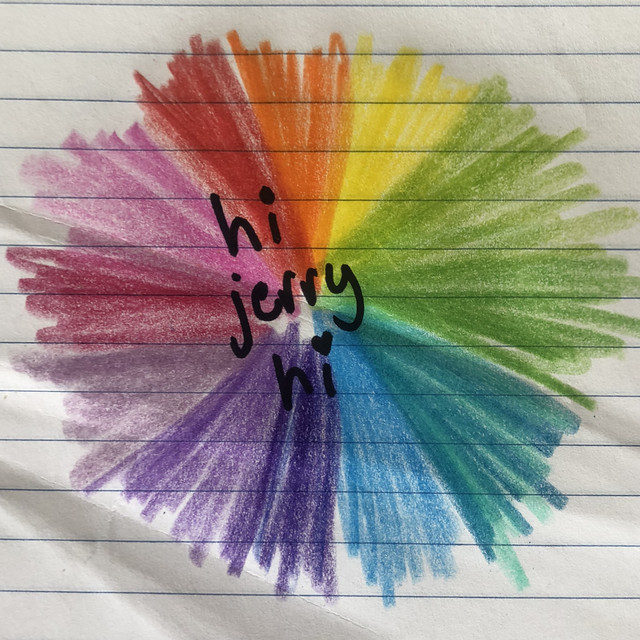 hi
jerry
hi